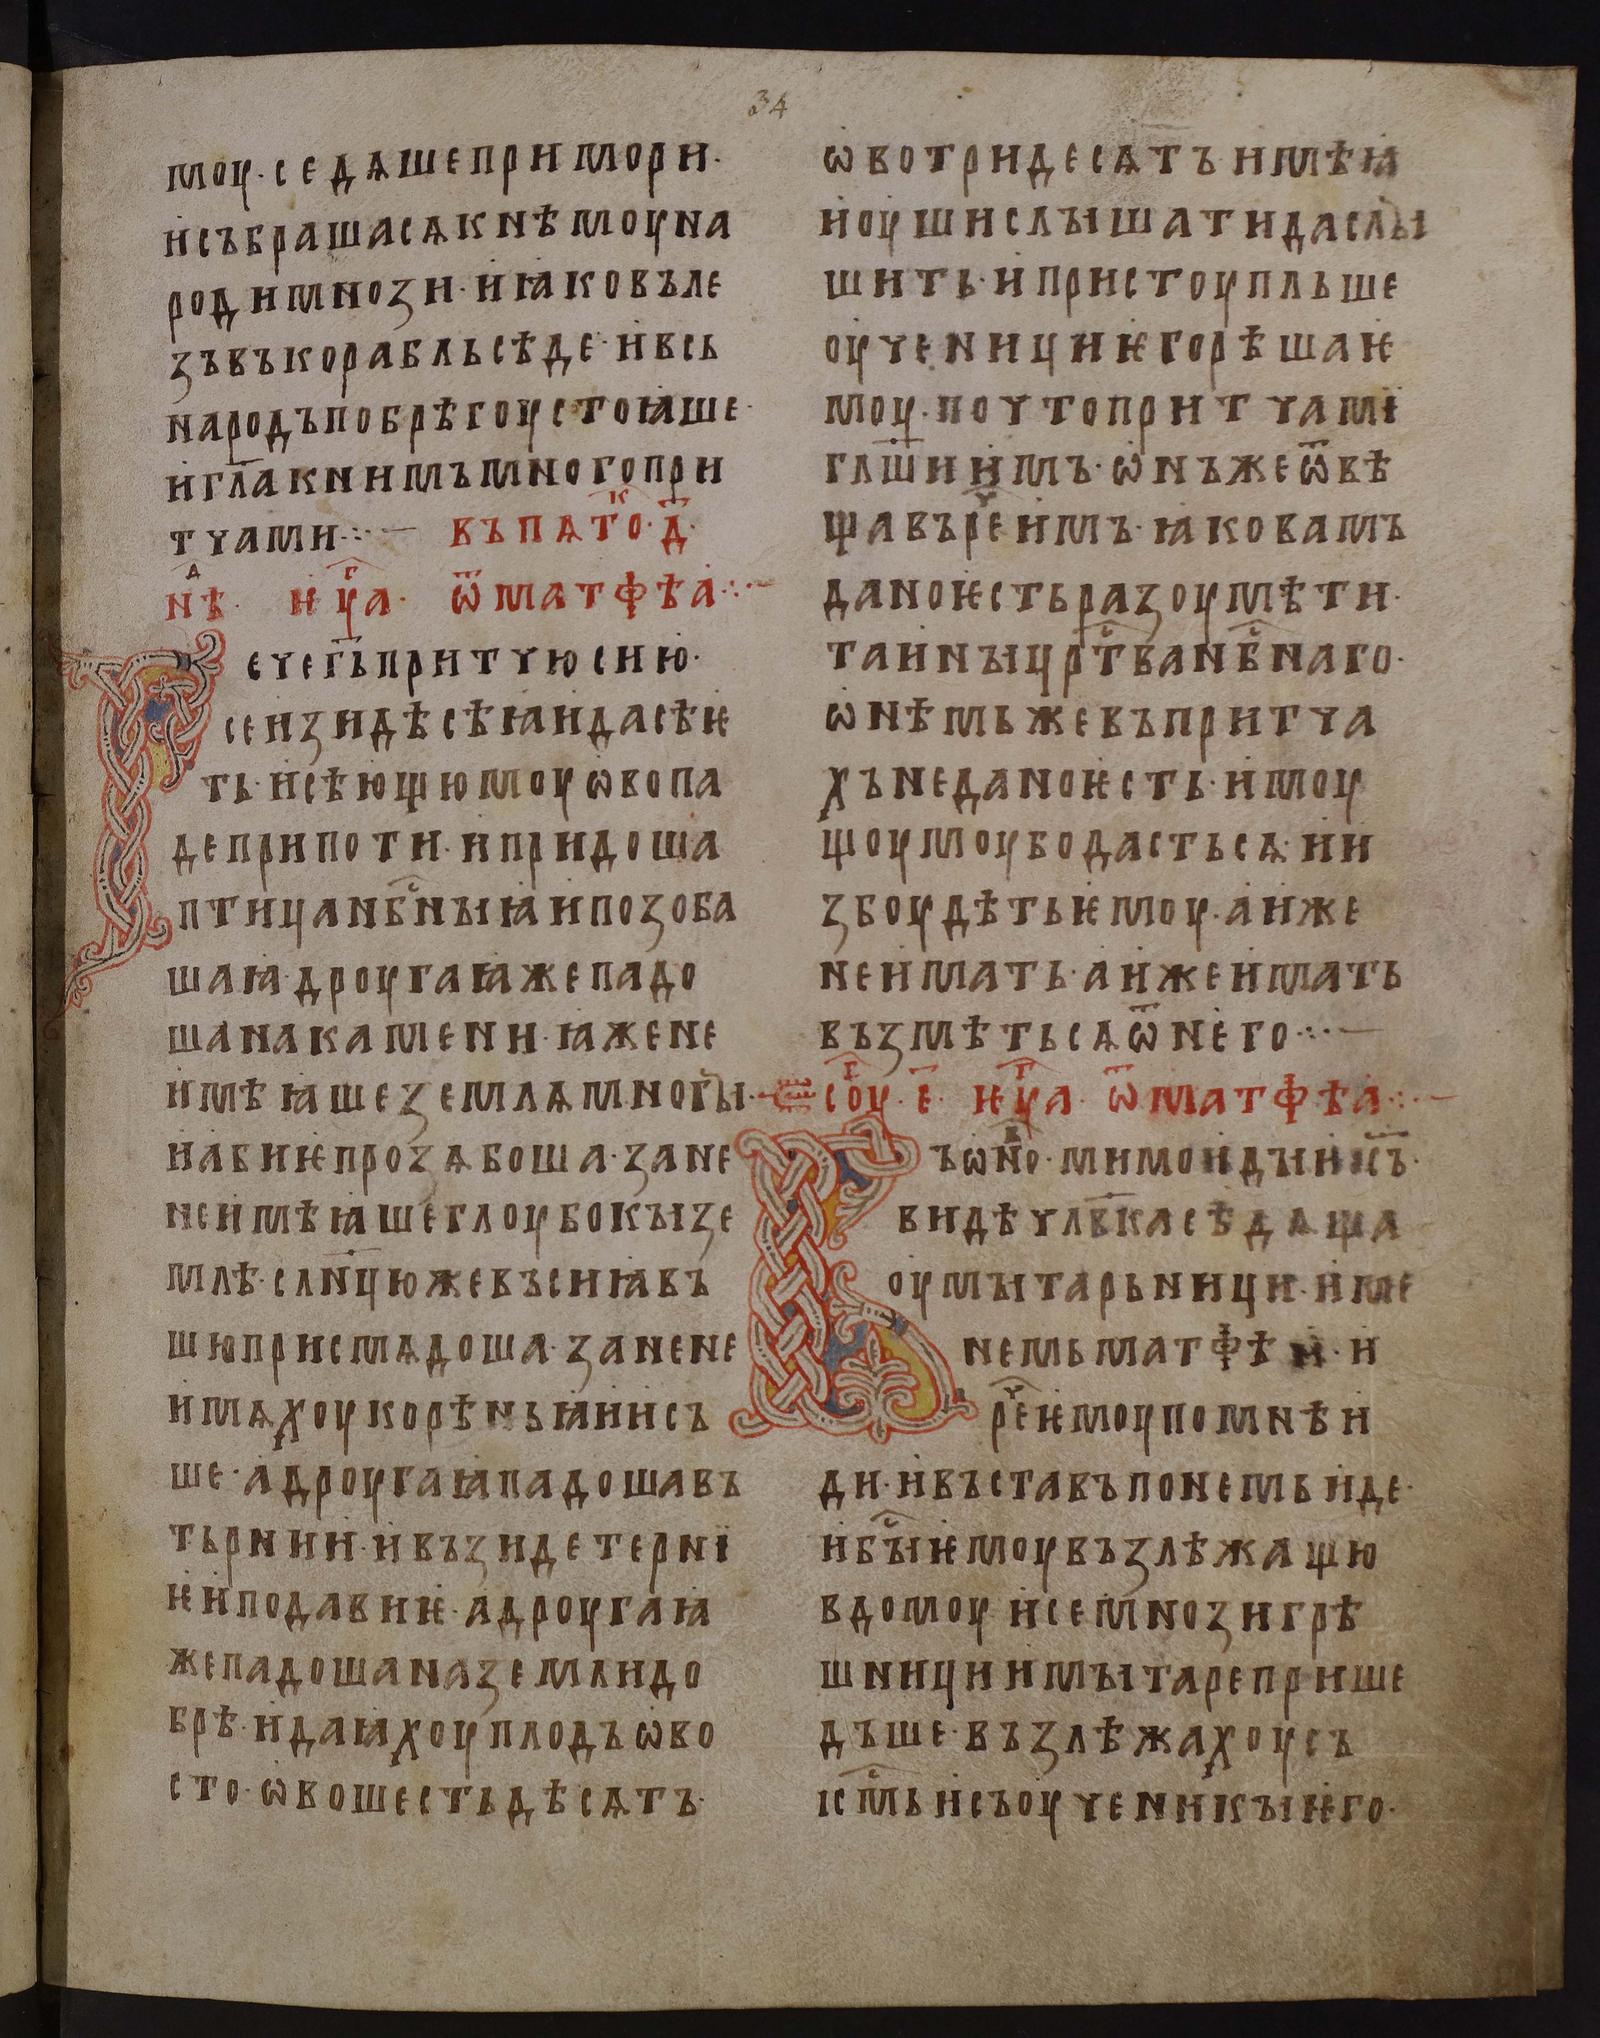 34
моꙋ· седѧшепримори·
исъбрашасѧкнѣмоꙋна
родимнози· иꙗковъле
зъвъкорабльсѣде· ивсь
народъпобрѣгоꙋстоꙗше·
игл҃акнимъмногопри
тчами⁘— въпѧтⷦ҇о· д҃·
нⷣѣ· нцⷢ҇а· ѿматфѣа⁘—
Речегь҃притчюсию·
сеизидѣсѣꙗидасѣѥ
ть· исѣющюмоꙋѡвопа
деприпоти· ипридоша
птицанбⷭ҇ныꙗипозоба
шаꙗ· дроꙋгаꙗжепадо
шанакамени· ꙗжене
имѣꙗшеземлѧмногы·
набиѥпрозѧбоша· зане
неимѣꙗшеглоꙋбокызе
млѣ· слн҃цюжевъсиꙗвъ
шюприсмѧдоша· занене
имѧхоꙋкорѣньꙗиисъ
ше· адроꙋгаꙗпадошавъ
тьрнии· ивъзидетерні
ѥиподавиѥ· адроꙋгаꙗ
жепадошаназемлидо
брѣ· идаꙗхоꙋплодъѡво
сто· ѡвошестьдѣсѧтъ·
ѡвотридесѧтъ· имѣꙗ
иоꙋшислышатидаслы
шить· ипристоꙋпльше
оꙋченициѥгорѣшаѥ
моꙋ· почтопритчамі
гл҃шиимъ· ѡнъжеѿвѣ
щавърⷱ҇еимъ· ꙗковамъ
даноѥстьразоꙋмѣти·
таиныцрⷭ҇тванбⷭ҇наго·
ѡнѣмьжевъпритча
хънеданоѥсть· имоꙋ
щоꙋмоꙋбодастьсѧ· ии
збоꙋдѣтьѥмоꙋ· аиже
неимать· аижеимать
възмѣтьсѧѿнего⁘—
сⷪ҇оꙋ· е҃· нцⷢ҇а· ѿматфѣа⁘—
Въѡнⷡ҇о· мимоидыиіс҃ъ·
видѣчлв҃касѣдѧща
оꙋмытарьници· име
немьматфѣи· и
рⷱ҇еѥмоꙋпомнѣи
ди· ивъставъпонемьиде·
ибыⷭ҇ѥмоꙋвъзлѣжащю
вдомоꙋисемнозигрѣ
шницимытареприше
дъше· възлѣжахоꙋсъ
ісⷭ҇мьисъоꙋченикыѥго·